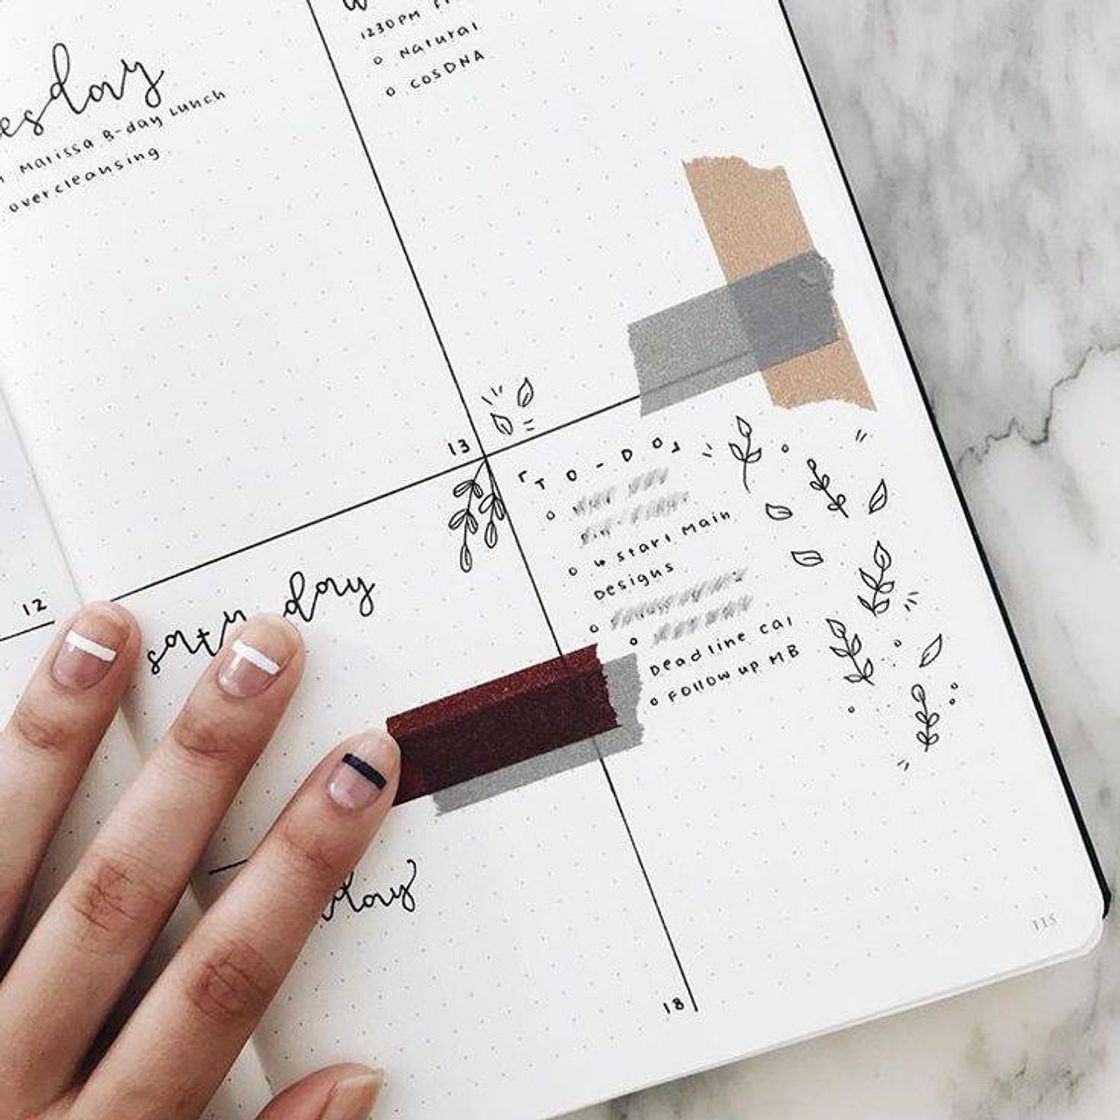 esday
Marissa B-day Lunch
overcleansing
1230PM
o Natural
o COSDNA
13
12
TO-DO
o
o ↳ start Main
Designs
o
o
Deadline Cal
o Follow up MB
satu day
day
18
115